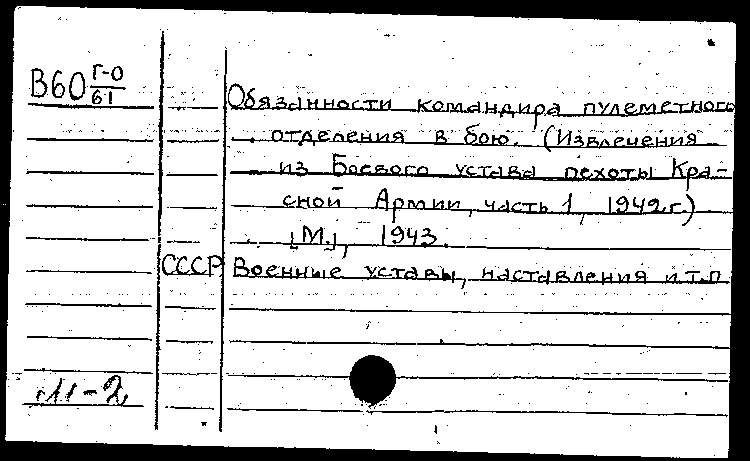 В60 Г-0/61
Обязанности командира пулеметного
отделения в бою. (Извлечения
из Боевого устава пехоты Кра-
сной Армии, часть 1, 1942г.)
[М.], 1943.
СССР Военные уставы, наставления и.т.п.
11-2